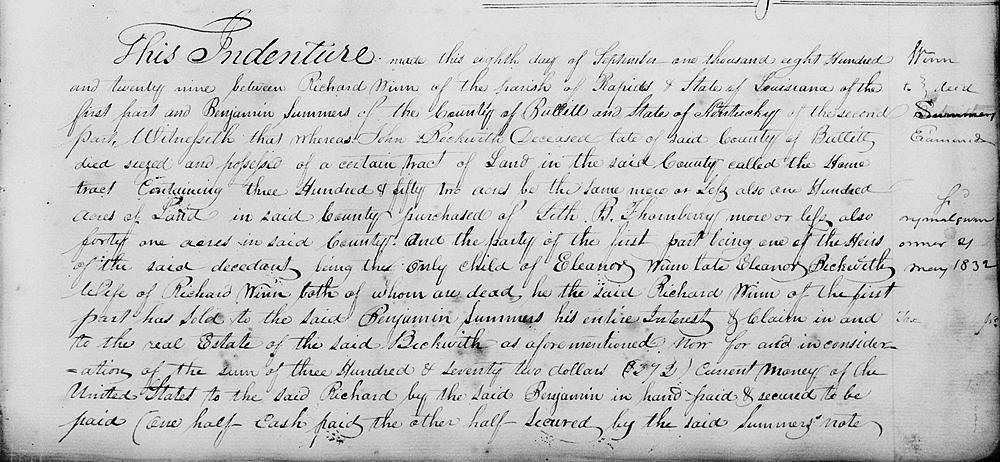 This Indenture made this eighth day of September one thousand eight Hundred
and twenty nine between Richard Winn of the parish of Rapids & State of Louisiana of the
first part and Benjamin Summers of the County of Bullitt and State of Kentucky of the second
part, Witnesseth that whereas John Beckwith Deceased late of said County of Bullitt
died seized and possessed of a certain tract of Land in the said County called the Home
tract Containing three Hundred & fifty two acres be the same more or less also one Hundred
acres of Land in said County purchased of Seth. B. Thornberry more or less also
forty one acres in said County. And the party of the first part being one of the Heirs
of the said decedant, being the only child of Eleanor Winn late Eleanor Beckwith
Wife of Richard Winn both of whom are dead, he the said Richard Winn of the first
part has Sold to the said Benjamin Summers his entire Interest & Claim in and
to the real Estate of the said Beckwith as aforementioned Now for and in consider-
=ation of the sum of three Hundred & seventy two dollars ($372) Current Money of the
United States to the said Richard by the said Benjamin in hand paid & secured to be
paid (One half Cash paid the other half secured by the said Summers' note
Winn
to } deed
Summers
Examined
May 1832